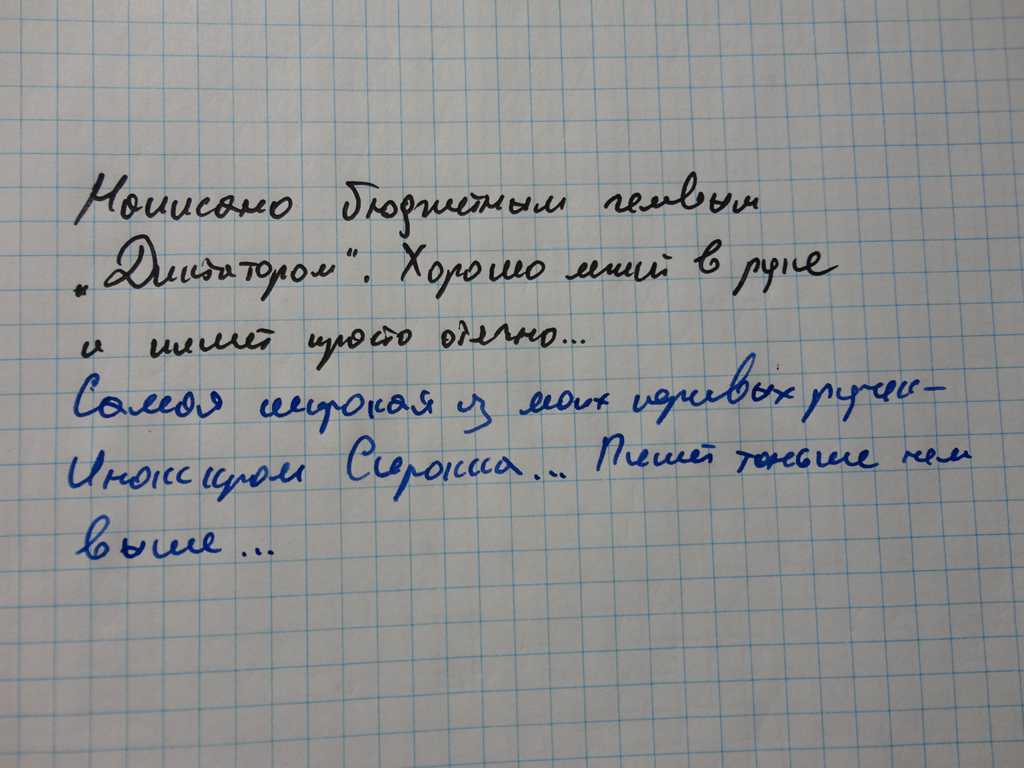 Написано бюджетным гелевым
„Диктатором". Хорошо лежит в руке
и пишет просто отлично...
Самая широкая из моих перьевых ручек–
Инокскром Сирокка... Пишет тоньше чем
выше...